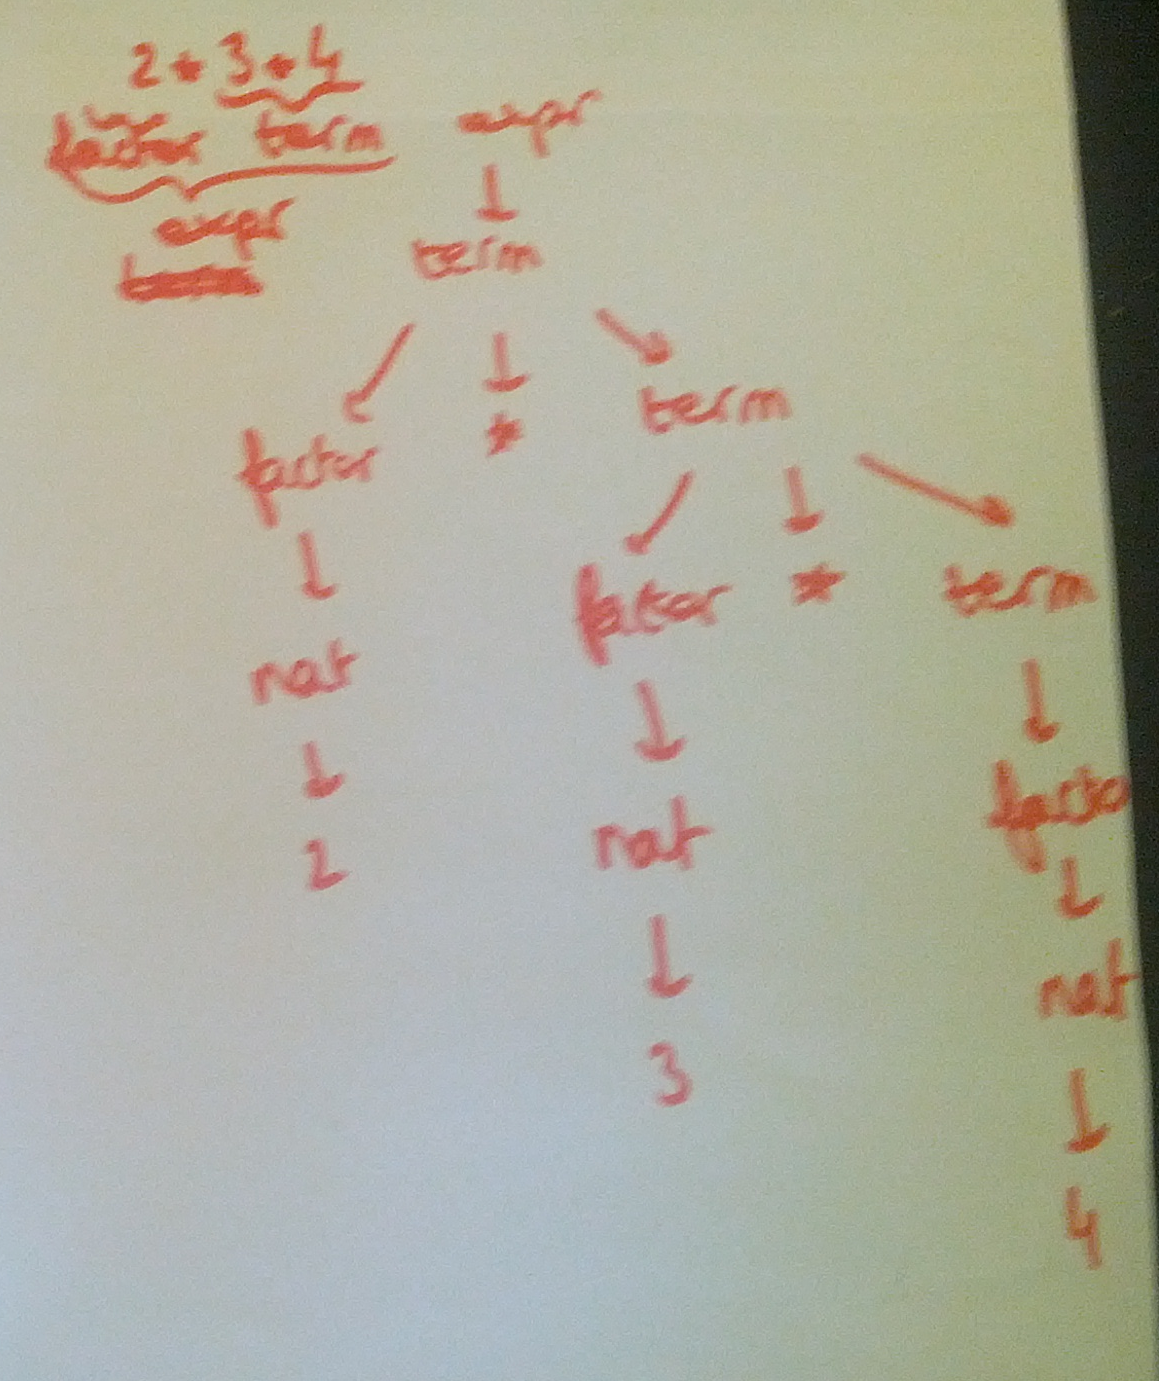 2 * 3 * 4
factor term
expr
expr
term
factor * term
factor * term
nat
nat
facto
2
nat
3
4